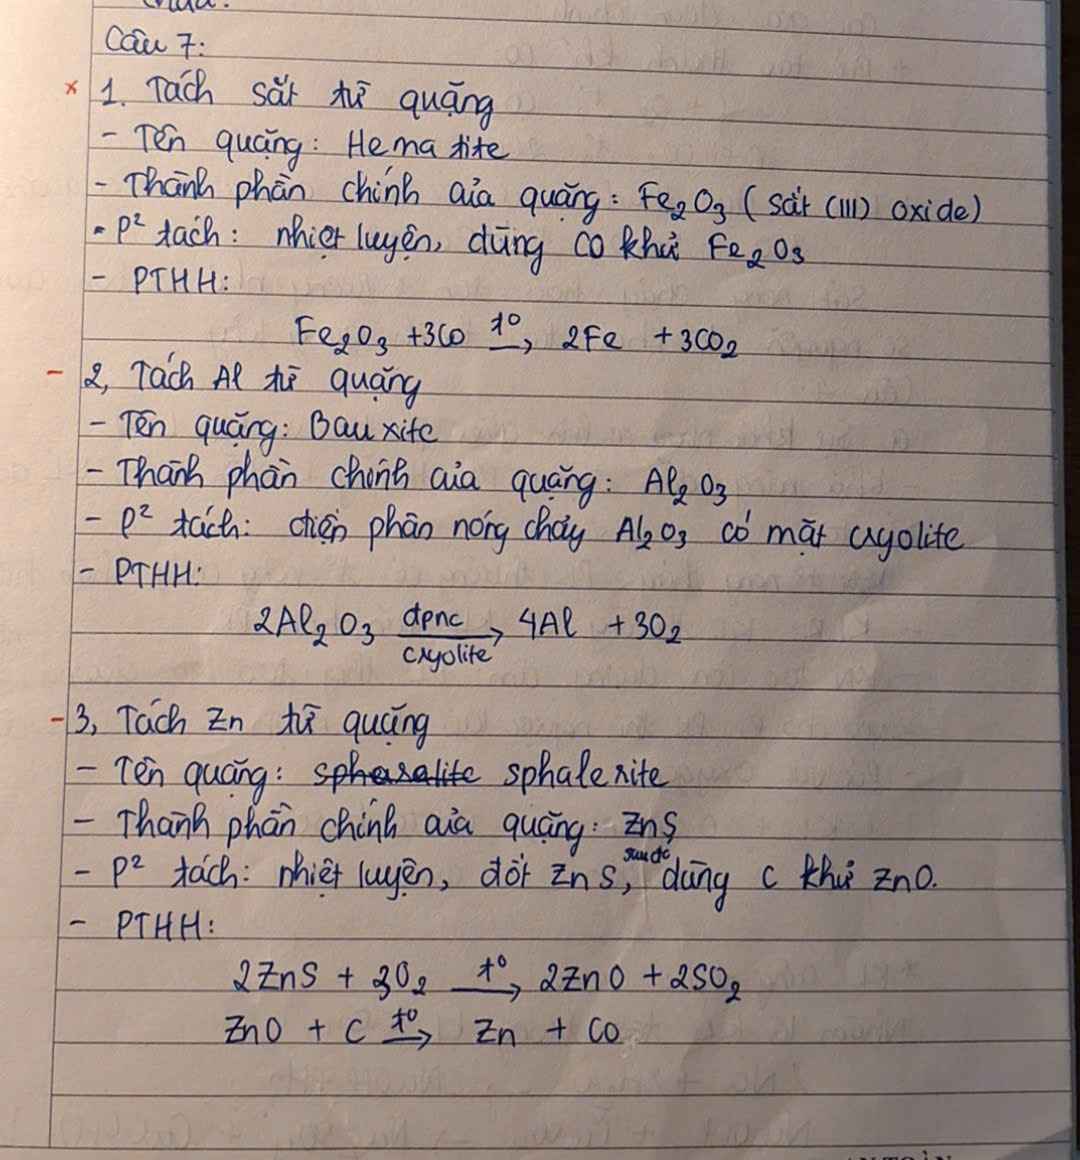 Câu 7:
x 1. Tách sắt từ quặng
- Tên quặng: Hematite
- Thành phần chính của quặng: Fe₂O₃ (sắt (III) oxide)
- P² tách: nhiệt luyện, dùng CO khử Fe₂O₃
- PTHH:
Fe₂O₃ + 3CO t° → 2Fe + 3CO₂
- 2, Tách Al từ quặng
- Tên quặng: Bauxite
- Thành phần chính của quặng: Al₂O₃
- P² tách: điện phân nóng chảy Al₂O₃ có mặt cryolite
- PTHH:
2Al₂O₃ đpnc → cryolite 4Al + 3O₂
- 3, Tách Zn từ quặng
- Tên quặng: spharalite sphalerite
- Thành phần chính của quặng: ZnS
- P² tách: nhiệt luyện, đốt ZnS, sau đó dùng C khử ZnO.
- PTHH:
2ZnS + 3O₂ t° → 2ZnO + 2SO₂
ZnO + C t° → Zn + CO